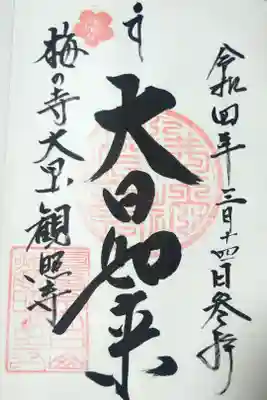 令和四年三月十四日参拝
大日如来
梅の寺大里観照寺